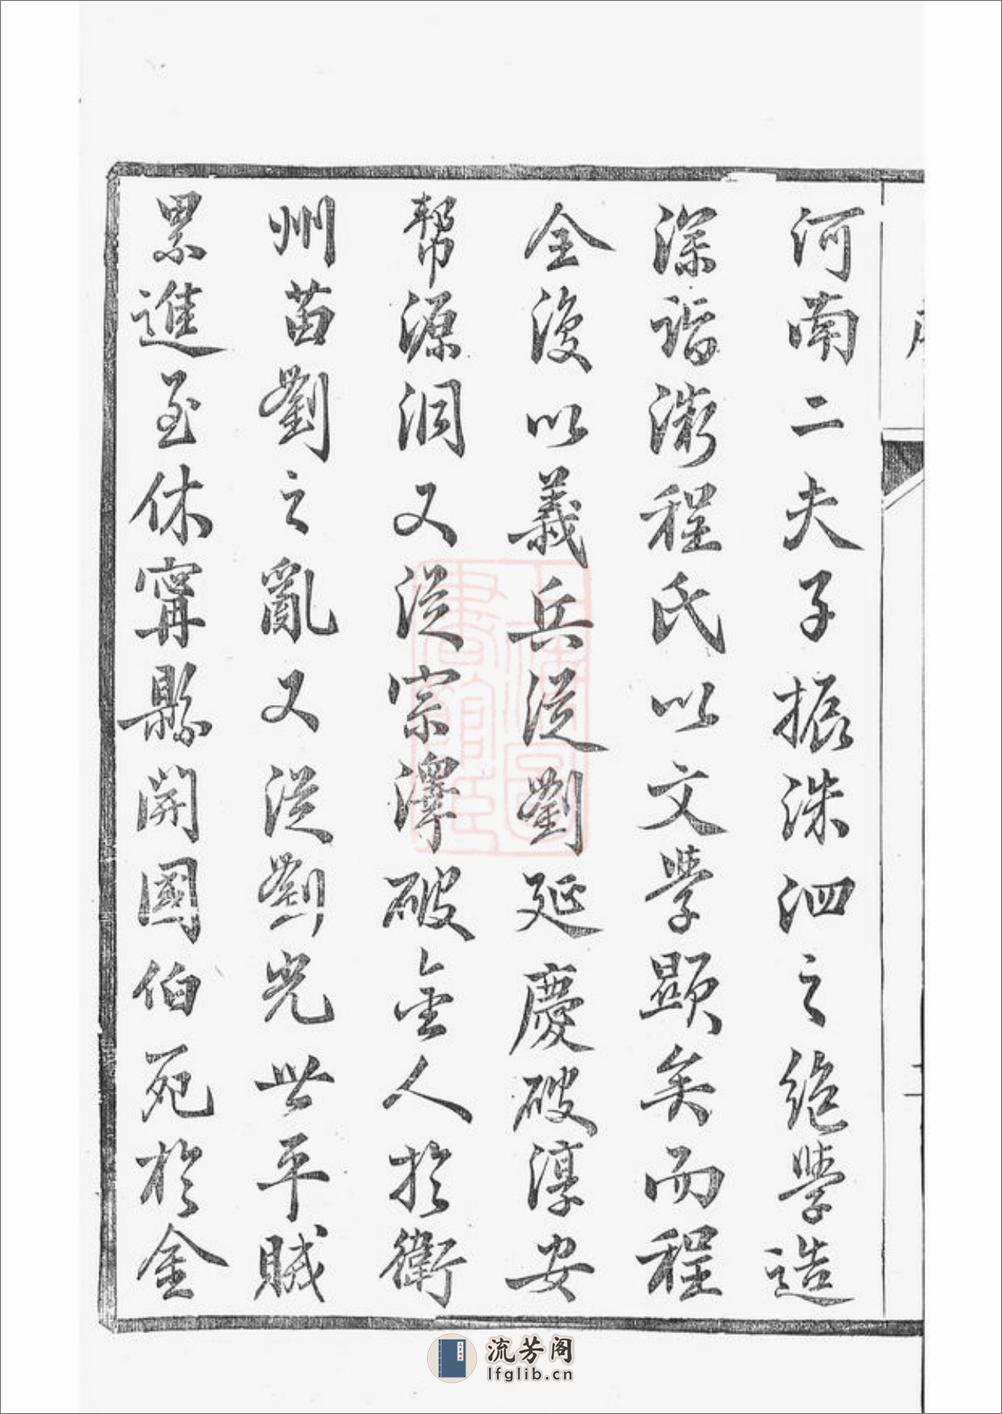 河南二夫子振洙泗之絶學造
深詣微程氏以文學顯矣而程
全後以義兵從劉延慶破淳安
幫源洞又從宗澤破金人於衛
州苗劉之亂又從劉光世平賊
累進至休寧縣開國伯死於金
流芳阁
lfglib.cn